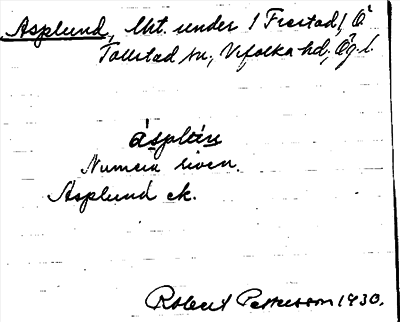 Asplund, lht. under 1 Frestad 1, Ö
Tollstad sn, Vifolka hd, Ög. l.
ásplún
Numera riven.
Asplund ek.
Robert Pettersson 1930.